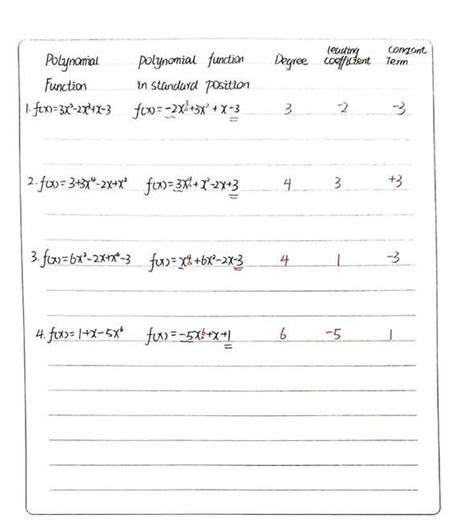 Polynomial Function polynomial function in standard position Degree leading coefficient constant Term
1. f(x)=3x²-2x³+x-3 f(x)=-2x³+3x²+x-3 3 -2 -3
2. f(x)=3+3x⁴-2x+x² f(x)=3x⁴+x²-2x+3 4 3 +3
3. f(x)=6x²-2x+x⁴-3 f(x)=x⁴+6x²-2x-3 4 1 -3
4. f(x)=1+x-5x⁶ f(x)=-5x⁶+x+1 6 -5 1